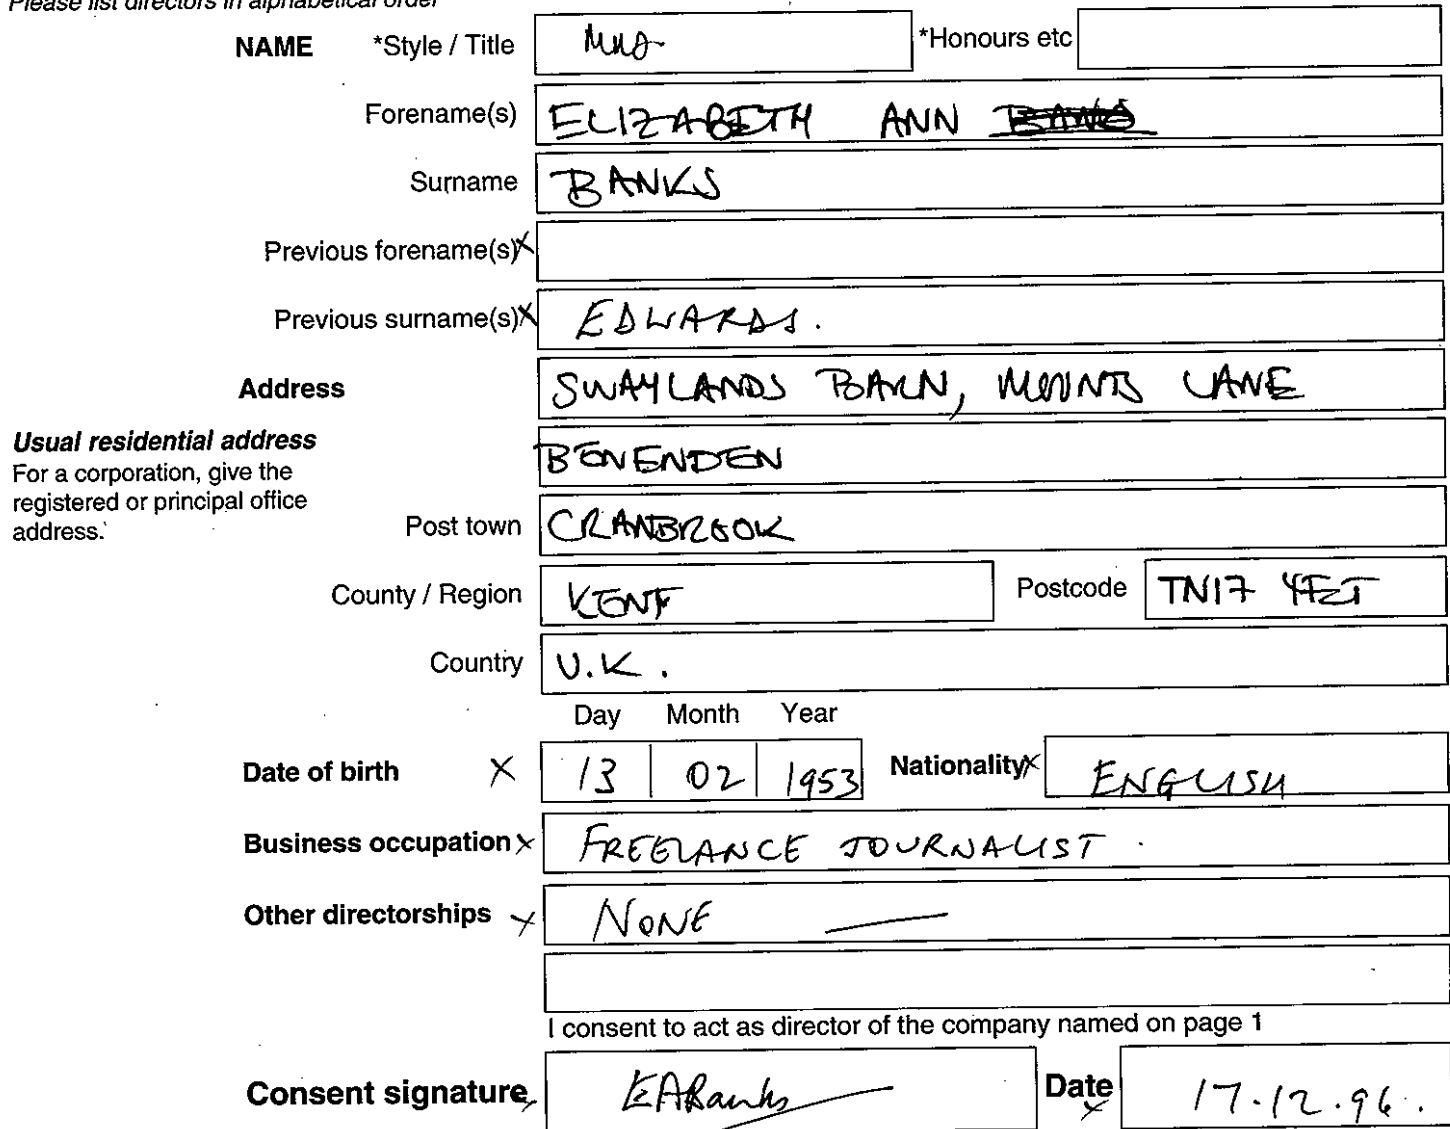 Please list directors in alphabetical order
NAME *Style / Title Mrs *Honours etc
Forename(s) ELIZABETH ANN
Surname BANKS
Previous forename(s)
Previous surname(s) EDWARDS.
Address SWAYLANDS BARN, MOUNTS LANE
Usual residential address
BENENDEN
For a corporation, give the
registered or principal office
address.
Post town CRANBROOK
County / Region KENT Postcode TN17 4ET
Country U.K.
Day Month Year
Date of birth X 13 02 1953 Nationality X ENGLISH
Business occupation X FREELANCE JOURNALIST.
Other directorships X NONE —
I consent to act as director of the company named on page 1
Consent signature EABanks Date 17.12.96.